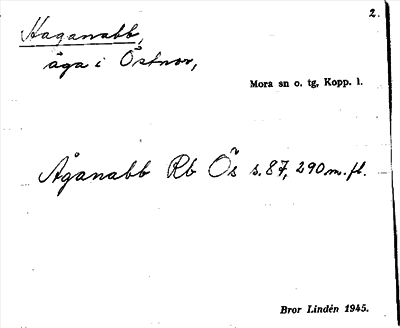 2.
Haganabb,
äga i Östnor,
Mora sn o. tg, Kopp. l.
Åganabb Rb Ös s. 87, 290 m. fl.
Bror Lindén 1945.